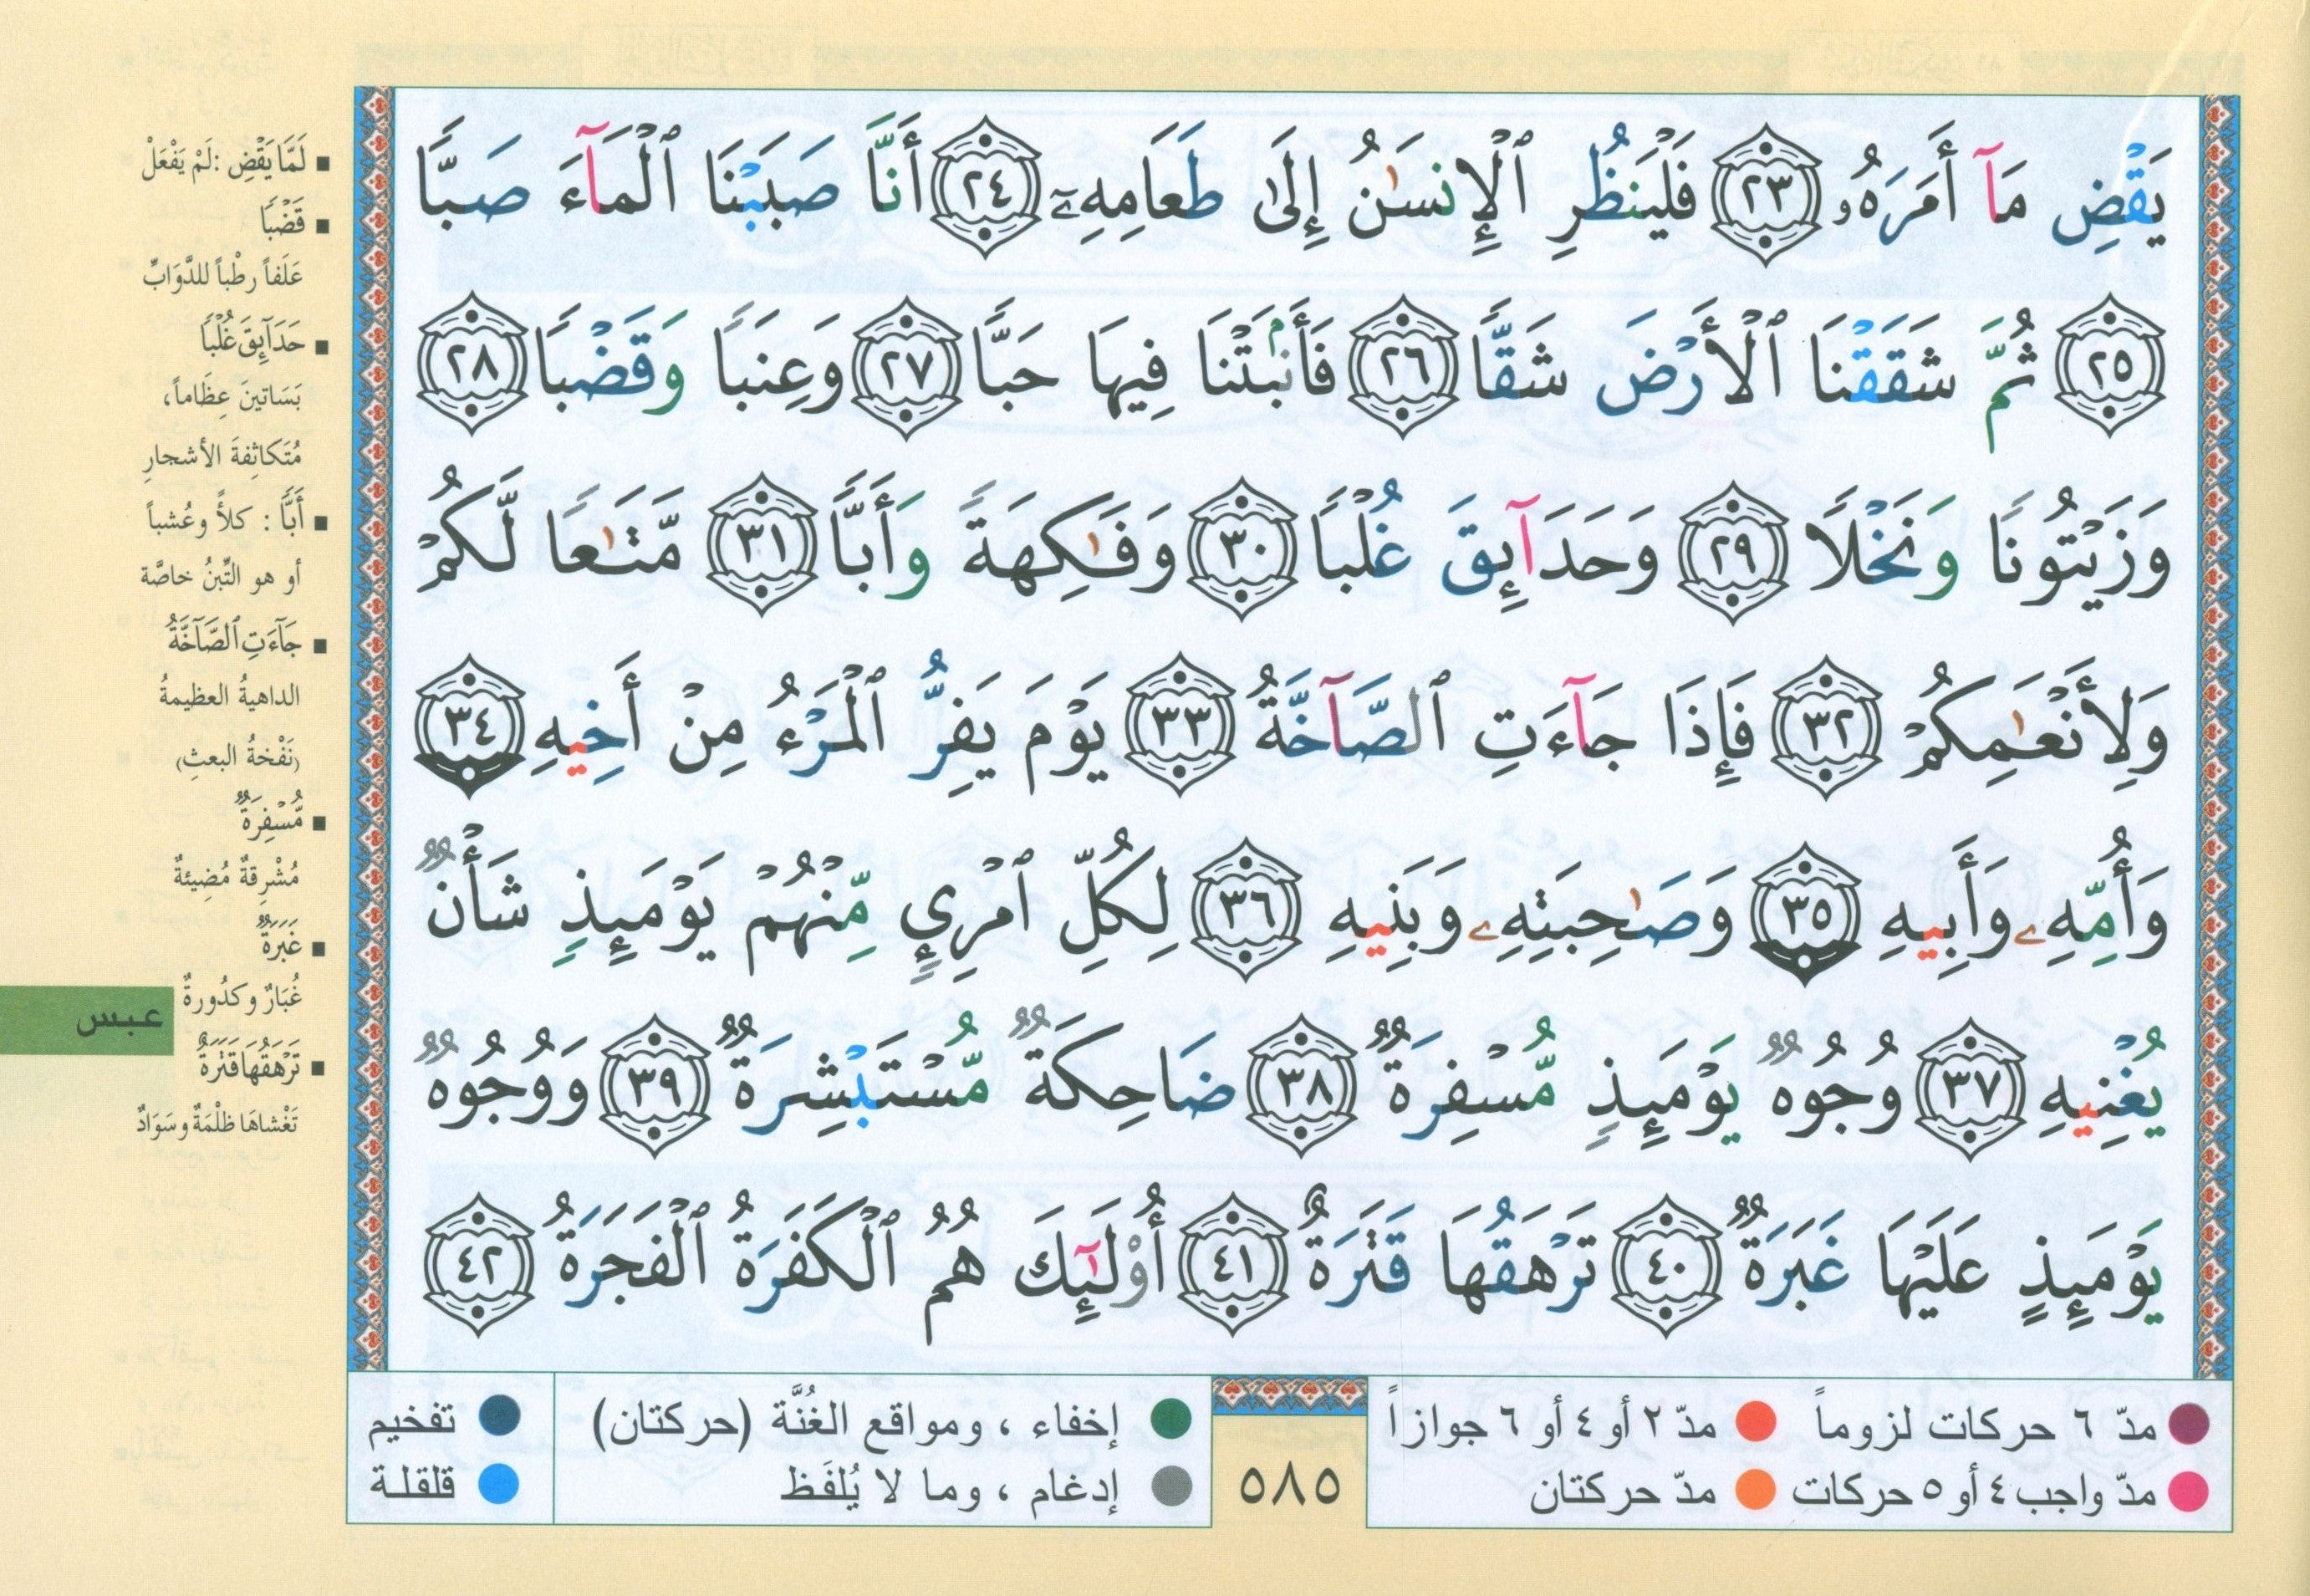 يَقْضِ مَآ أَمَرَهُۥ ٢٣ فَلْيَنظُرِ ٱلْإِنسَٰنُ إِلَىٰ طَعَامِهِۦٓ ٢٤ أَنَّا صَبَبْنَا ٱلْمَآءَ صَبًّا
٢٥ ثُمَّ شَقَقْنَا ٱلْأَرْضَ شَقًّا ٢٦ فَأَنۢبَتْنَا فِيهَا حَبًّا ٢٧ وَعِنَبًا وَقَضْبًا ٢٨
وَزَيْتُونًا وَنَخْلًا ٢٩ وَحَدَآئِقَ غُلْبًا ٣٠ وَفَٰكِهَةً وَأَبًّا ٣١ مَّتَٰعًا لَّكُمْ
وَلِأَنْعَٰمِكُمْ ٣٢ فَإِذَا جَآءَتِ ٱلصَّآخَّةُ ٣٣ يَوْمَ يَفِرُّ ٱلْمَرْءُ مِنْ أَخِيهِ ٣٤
وَأُمِّهِۦ وَأَبِيهِ ٣٥ وَصَٰحِبَتِهِۦ وَبَنِيهِ ٣٦ لِكُلِّ ٱمْرِئٍ مِّنْهُمْ يَوْمَئِذٍ شَأْنٌ
يُغْنِيهِ ٣٧ وُجُوهٌ يَوْمَئِذٍ مُّسْفِرَةٌ ٣٨ ضَاحِكَةٌ مُّسْتَبْشِرَةٌ ٣٩ وَوُجُوهٌ
يَوْمَئِذٍ عَلَيْهَا غَبَرَةٌ ٤٠ تَرْهَقُهَا قَتَرَةٌ ٤١ أُو۟لَٰٓئِكَ هُمُ ٱلْكَفَرَةُ ٱلْفَجَرَةُ ٤٢
■ لَمَّا يَقْضِ : لَمْ يَفْعَلْ
■ قَضْبًا
عَلَفاً رطْباً للدَّوَابِّ
■ حَدَآئِقَ غُلْبًا
بَسَاتينَ عِظَاماً،
مُتَكاثِفةَ الأشجارِ
■ أَبًّا : كلأً وعُشباً
أو هو التِّبنُ خاصَّة
■ جَآءَتِ ٱلصَّآخَّةُ
الداهيةُ العظيمةُ
(نَفْخةُ البعثِ)
■ مُّسْفِرَةٌ
مُشْرِقةٌ مُضِيئةٌ
■ غَبَرَةٌ
غُبَارٌ وكدُورةٌ
■ تَرْهَقُهَا قَتَرَةٌ
تَغْشاهَا ظلْمَةٌ وسَوَادٌ
عبس
مدّ ٦ حركات لزوماً مدّ ٢ أو ٤ أو ٦ جوازاً
مدّ واجب ٤ أو ٥ حركات مدّ حركتان
٥٨٥
إخفاء ، ومواقع الغُنَّة (حركتان)
إدغام ، وما لا يُلفَظ
تفخيم
قلقلة